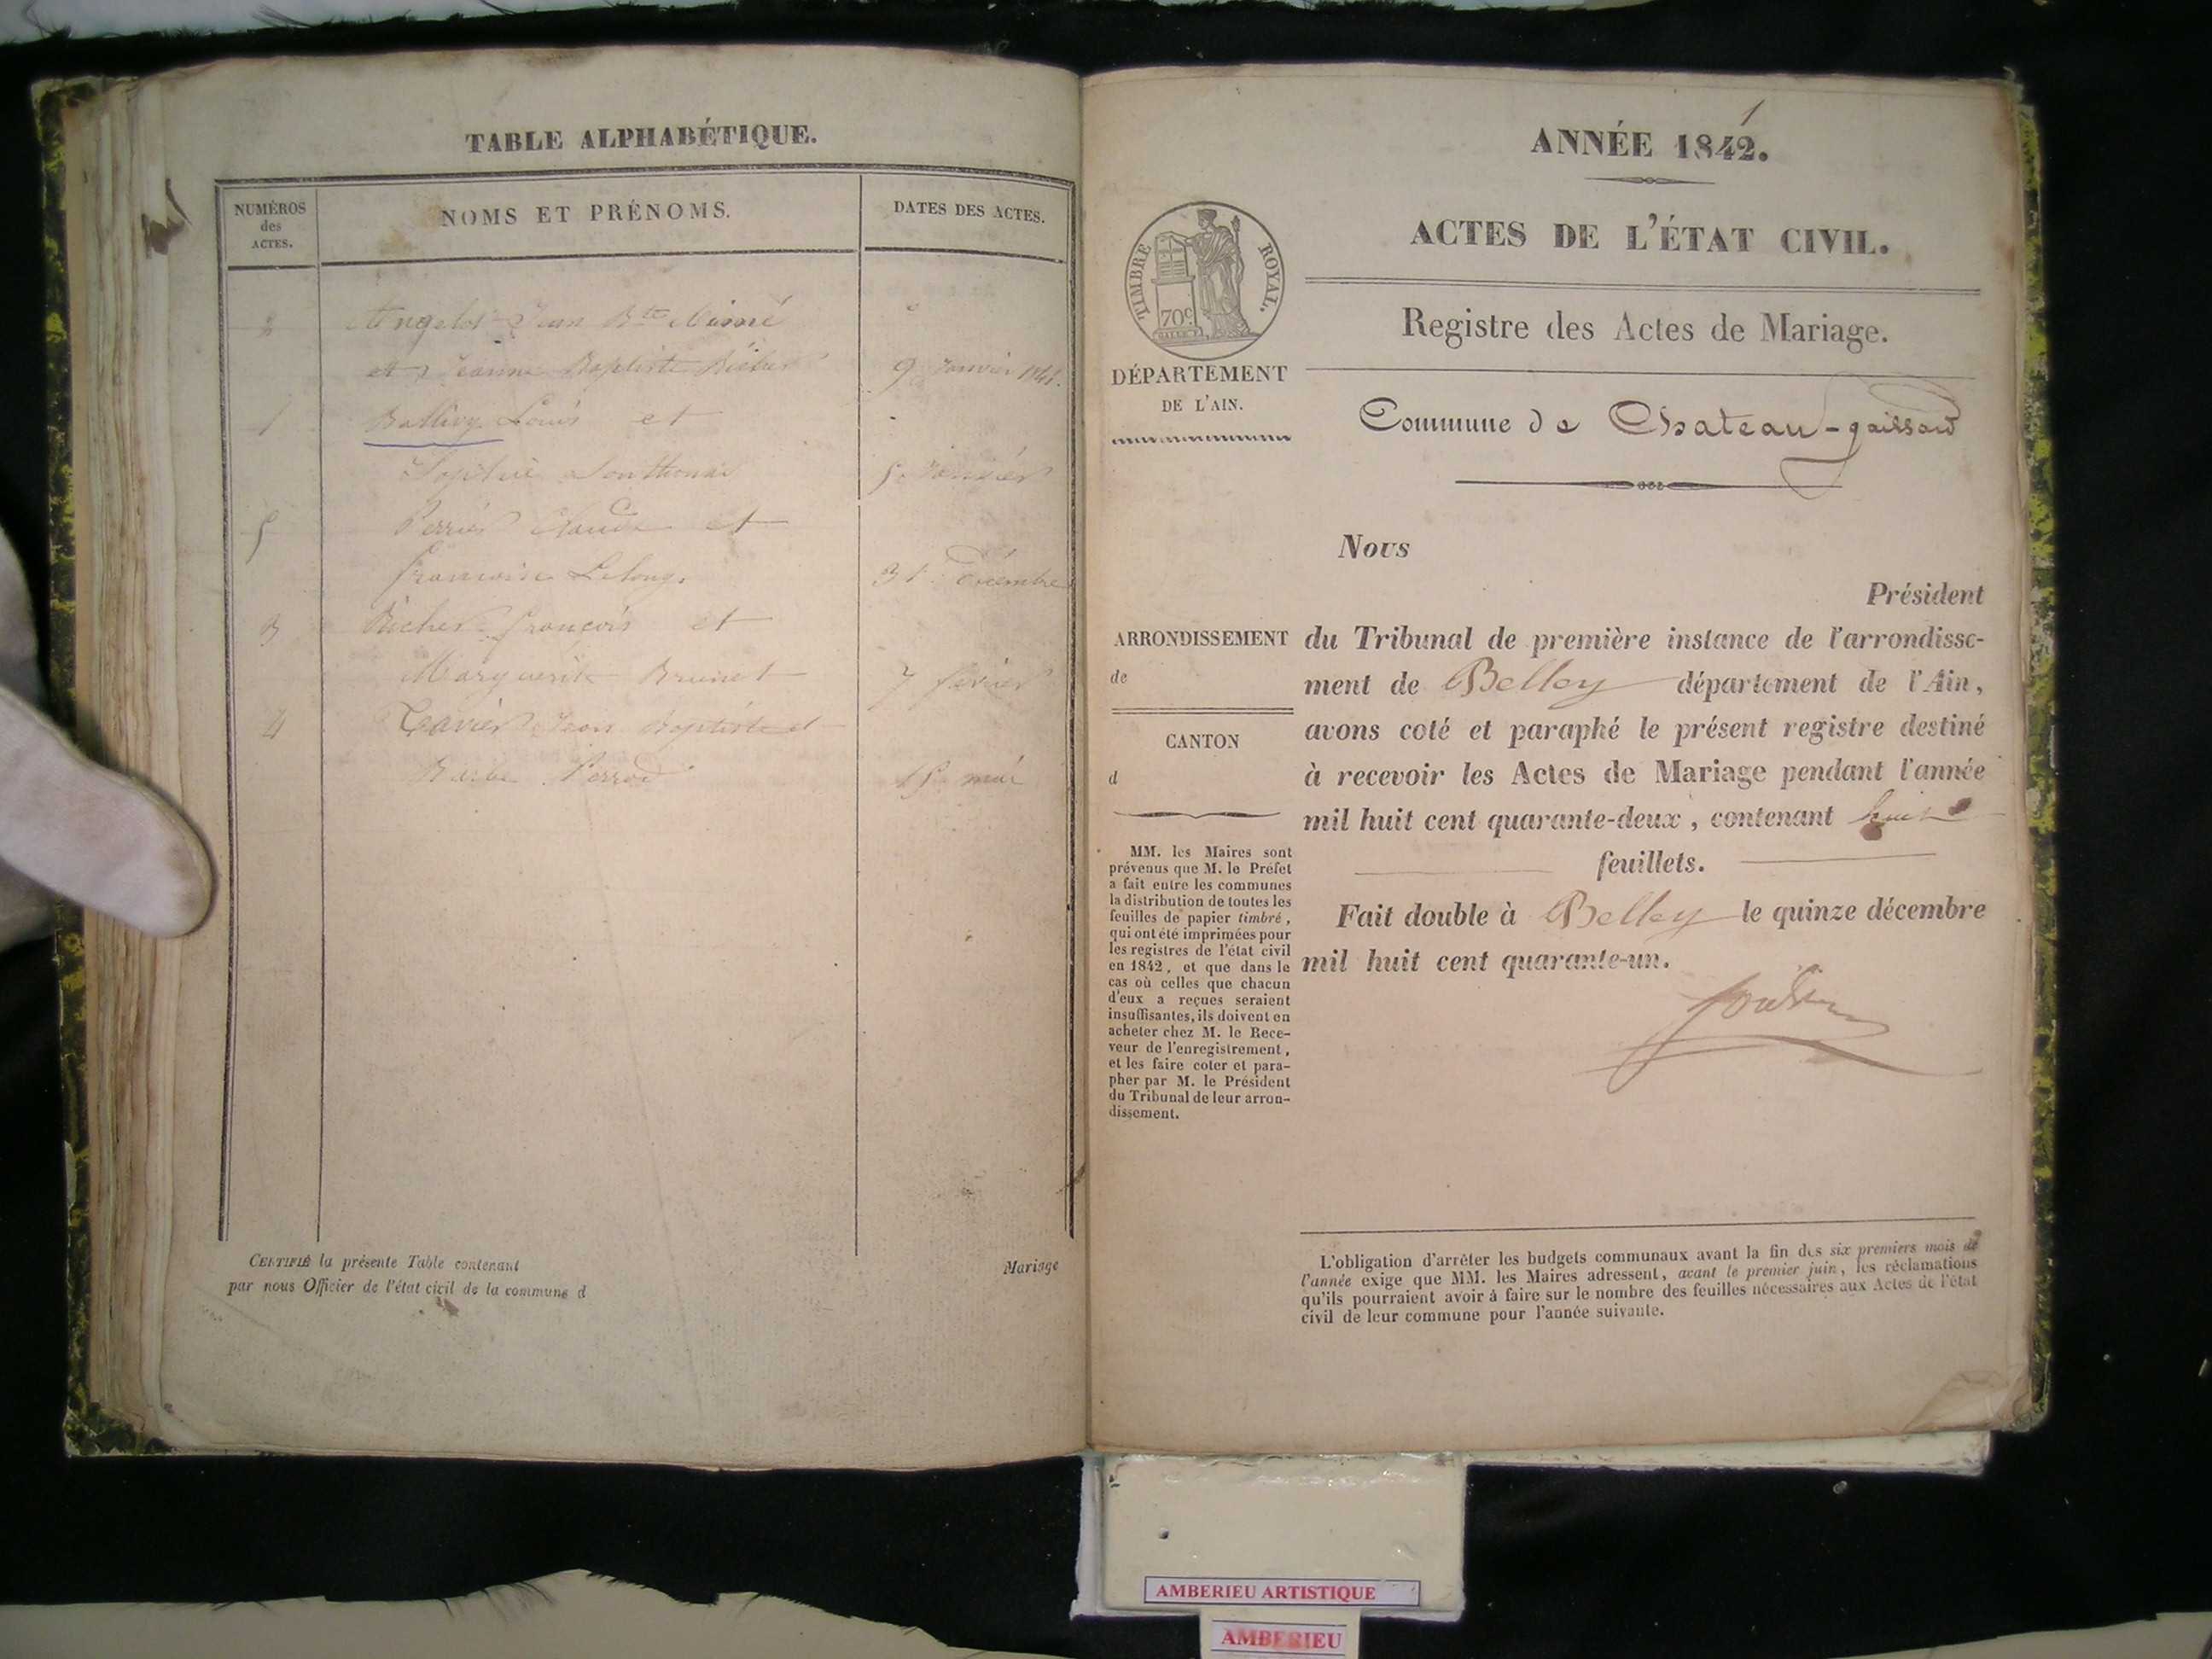 TABLE ALPHABÉTIQUE.
NUMÉROS
des
ACTES.
NOMS ET PRÉNOMS.
DATES DES ACTES.
2 Angelot Jean Bte
et Jeanne Baptiste 9 Janvier 1841.
1 Louis et
Sophie 5 Janvier
5 Perrier Claude et
françoise Lelong. 31 Décembre
3 françois et
Marguerite Brunet 7 février
4 Tavier Jean Baptiste et
Perrod 15 mai
CERTIFIÉ la présente Table contenant
par nous Officier de l'état civil de la commune d
Mariage
1
ANNÉE 1842.
ACTES DE L'ÉTAT CIVIL.
Registre des Actes de Mariage.
Commune de Chateau-gaillard
TIMBRE ROYAL.
70c
DÉPARTEMENT
DE L'AIN.
ARRONDISSEMENT
de
CANTON
d
MM. les Maires sont
prévenus que M. le Préfet
a fait entre les communes
la distribution de toutes les
feuilles de papier timbré,
qui ont été imprimées pour
les registres de l'état civil
en 1842, et que dans le
cas où celles que chacun
d'eux a reçues seraient
insuffisantes, ils doivent en
acheter chez M. le Rece-
veur de l'enregistrement,
et les faire coter et para-
pher par M. le Président
du Tribunal de leur arron-
dissement.
Nous
Président
du Tribunal de première instance de l'arrondisse-
ment de Belley département de l'Ain,
avons coté et paraphé le présent registre destiné
à recevoir les Actes de Mariage pendant l'année
mil huit cent quarante-deux, contenant huit
feuillets.
Fait double à Belley le quinze décembre
mil huit cent quarante-un.
L'obligation d'arrêter les budgets communaux avant la fin des six premiers mois de
l'année exige que MM. les Maires adressent, avant le premier juin, les réclamations
qu'ils pourraient avoir à faire sur le nombre des feuilles nécessaires aux Actes de l'état
civil de leur commune pour l'année suivante.
AMBERIEU ARTISTIQUE
AMBERIEU